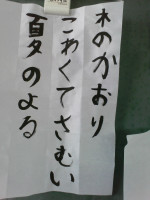 木のかおり
こわくてさむい
夏のよる